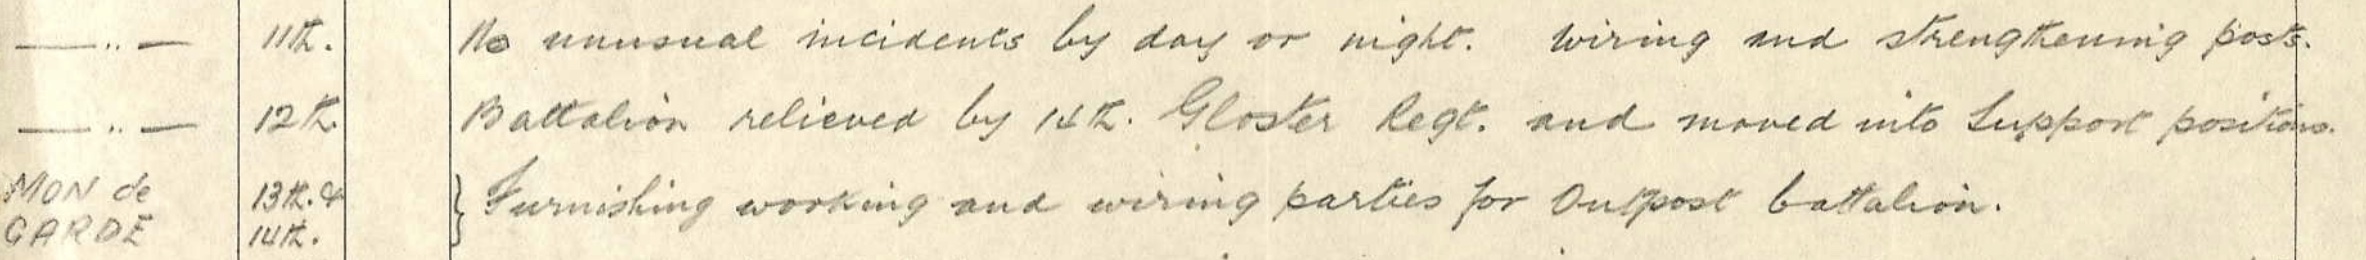 —"— 11th. No unusual incidents by day or night. Wiring and strengthening posts.
—"— 12th. Battalion relieved by 14th. Gloster Regt. and moved into Support positions.
MON de 13th. & } Furnishing working and wiring parties for Outpost battalion.
GARDE 14th.